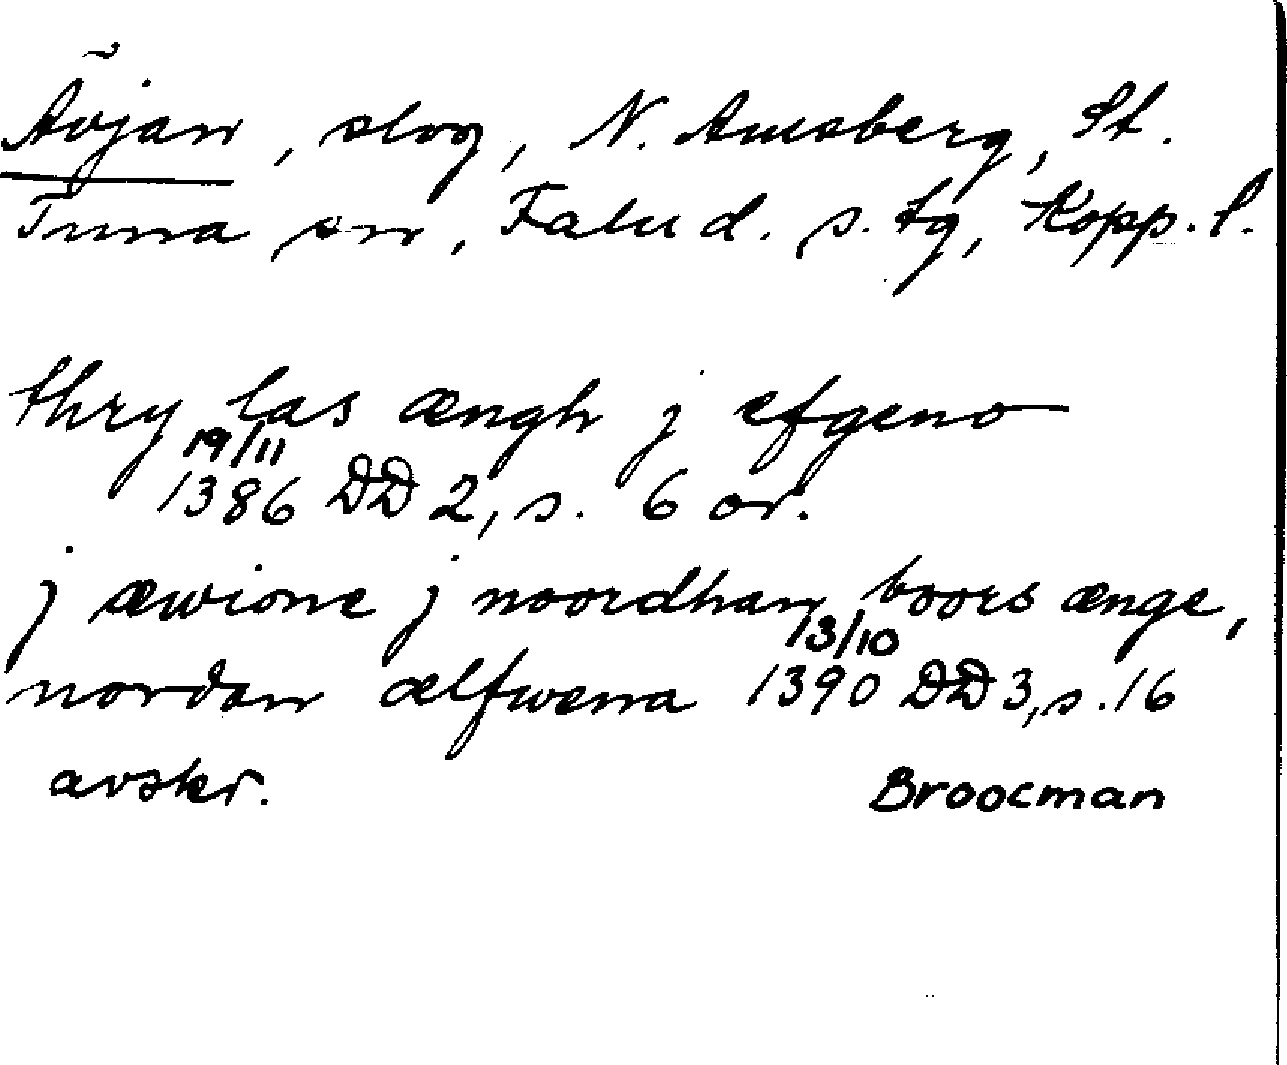 Ãvjan, slog, N. Amsberg, St.
Tuna sn, Falu d. s. tg, Kopp. l.
thry las ængh j efgeno
19/11
1386 DD 2, s. 6 or.
j æwione j noordhan boors ænge,
13/10
nordan ælfwenna 1390 DD 3, s. 16
avskr. Broocman